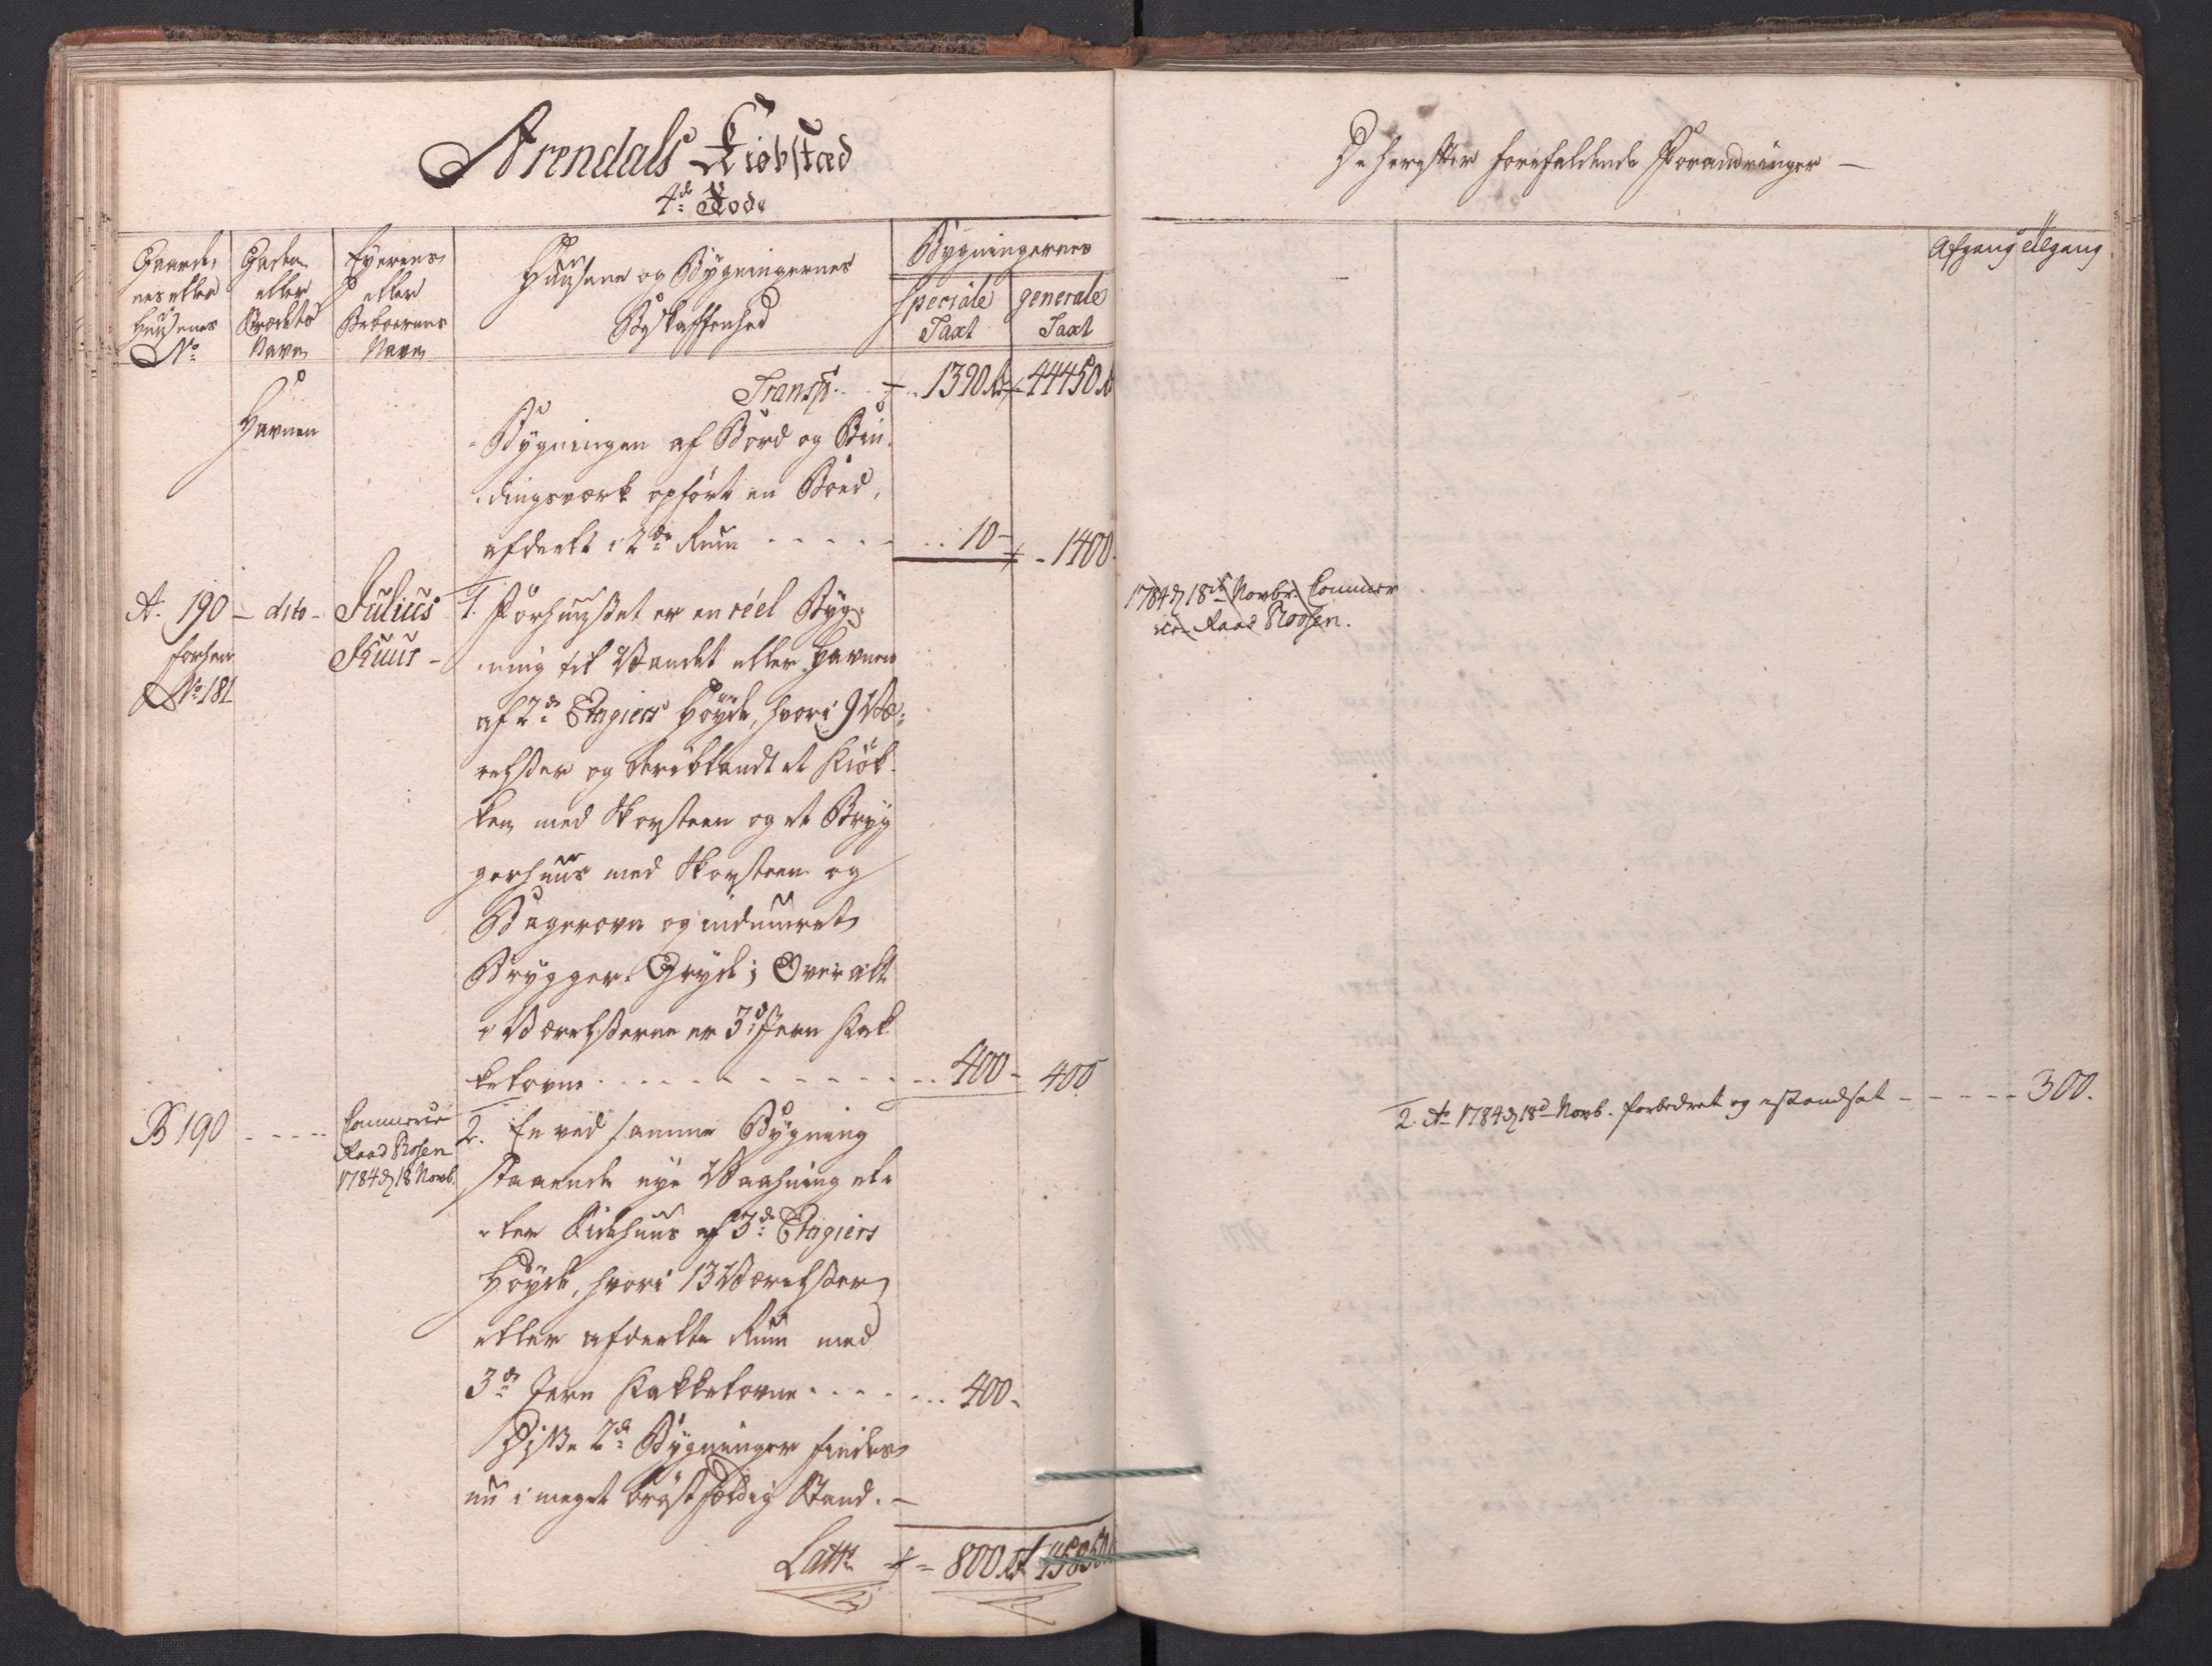 Arendals Kiøbstæd
4de Rode
Gaarde,
nes eller
Huusenes
No
Gades
eller
Strædets
Navn
Eyerens
eller
Beboerens
Navn
Huusene og Bygningernes
Beskaffenhed
Bygningernes
Speciale
Taxt
generale
Taxt
Transpt 1390 44450
Havnen
Bygningen af Bord og Bin-
dingsværk opført en Boed,
afdeelt i 2de Rum - - - - - 10 - 1400
A. 190 - dito - Julius
Kuur -
forhen
No 181
1. Forhuuset er en réel Byg-
ning til Vandet eller Havnen
af 2de Etagiers Høyde, hvori 9 Væ-
relsser og deriblandt et Kiøk-
ken med Skorsteen og et Bryg
gerhuus med Skorsteen og
Bagerovn og indmuret
Brygger-Gryde; Over alt
i Værelsserne er 3de Jern Kak
kelovne - - - - - - 400 - 400
B 190 - - - -
Commerce
Raad Bosen
1784 d 18 Novb.
2. En ved samme Bygning
staaende nye Vaahning el-
ler Sidehuus af 3de Etagiers
Høyde, hvori 13 Værelsser
eller afdeelte Rum med
3de Jern Kakkelovne - - - - 400 -
Disse 2de Bygninger findes
nu i meget brøstfældig Stand. -
Latr 800 45850
De herefter forefaldende Forandringer -
Afgang Tilgang
1784 d 18de Novbr. Commer
ce Raad Bossen.
2. Ao 1784 d 18de Novb. forbedret og istandsat - - - - - 300.